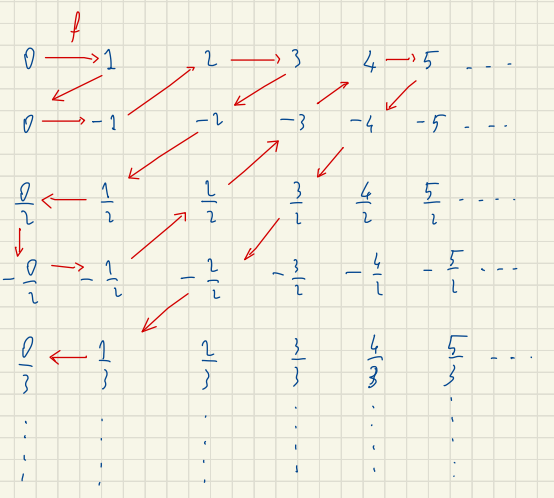 f
0 → 1 2 → 3 4 → 5 ....
0 → -1 -2 -3 -4 -5 ....
0/2 ← 1/2 2/2 3/2 4/2 5/2 .....
-0/2 → -1/2 -2/2 -3/2 -4/2 -5/2 ....
0/3 ← 1/3 2/3 3/3 4/3 5/3 ....